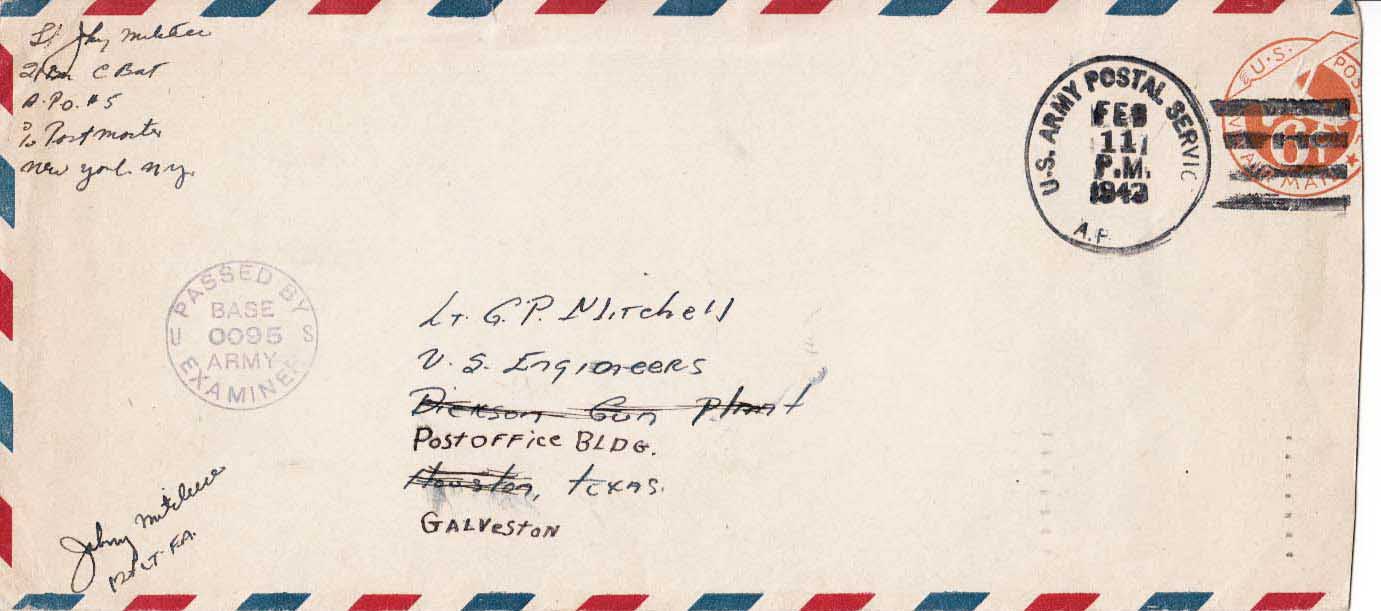 Lt Jhy Mitchell
2 Bn C Bat
A.P.O. #5
% Postmaster
New York. N.Y.
U.S. ARMY POSTAL SERVIC
FEB
11
P.M.
1943
A.P.
U.S. POS
6¢
AIR MAIL
PASSED BY
BASE
U 0095 S
ARMY
EXAMINER
Lt. G.P. Mitchell
U.S. Engineers
Dickson Gun Plant
Postoffice BLDG.
Houston, Texas.
GALVESTON
Johnny Mitchell
LT. F.A.